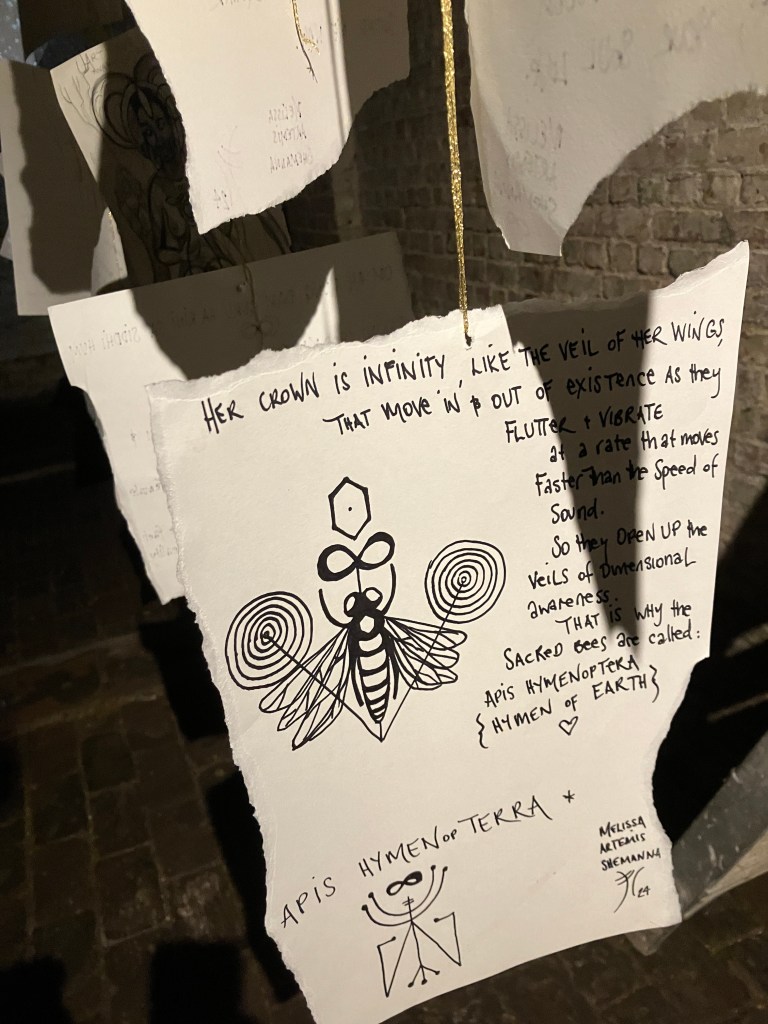 MELISSA
ARTEMIS
SHEMANNA
HER CROWN IS INFINITY, LIKE THE VEIL OF HER WINGS,
THAT MOVE IN & OUT OF EXISTENCE AS they
FLUTTER + VIBRATE
at a rate that moves
Faster than the Speed of
Sound.
So they OPEN UP the
veils of Dimensional
awareness.
THAT IS WHY the
SACRED Bees are called:
APIS HYMENOPTERA
{HYMEN OF EARTH}
APIS HYMENOPTERRA *
MELISSA
ARTEMIS
SHEMANNA
24